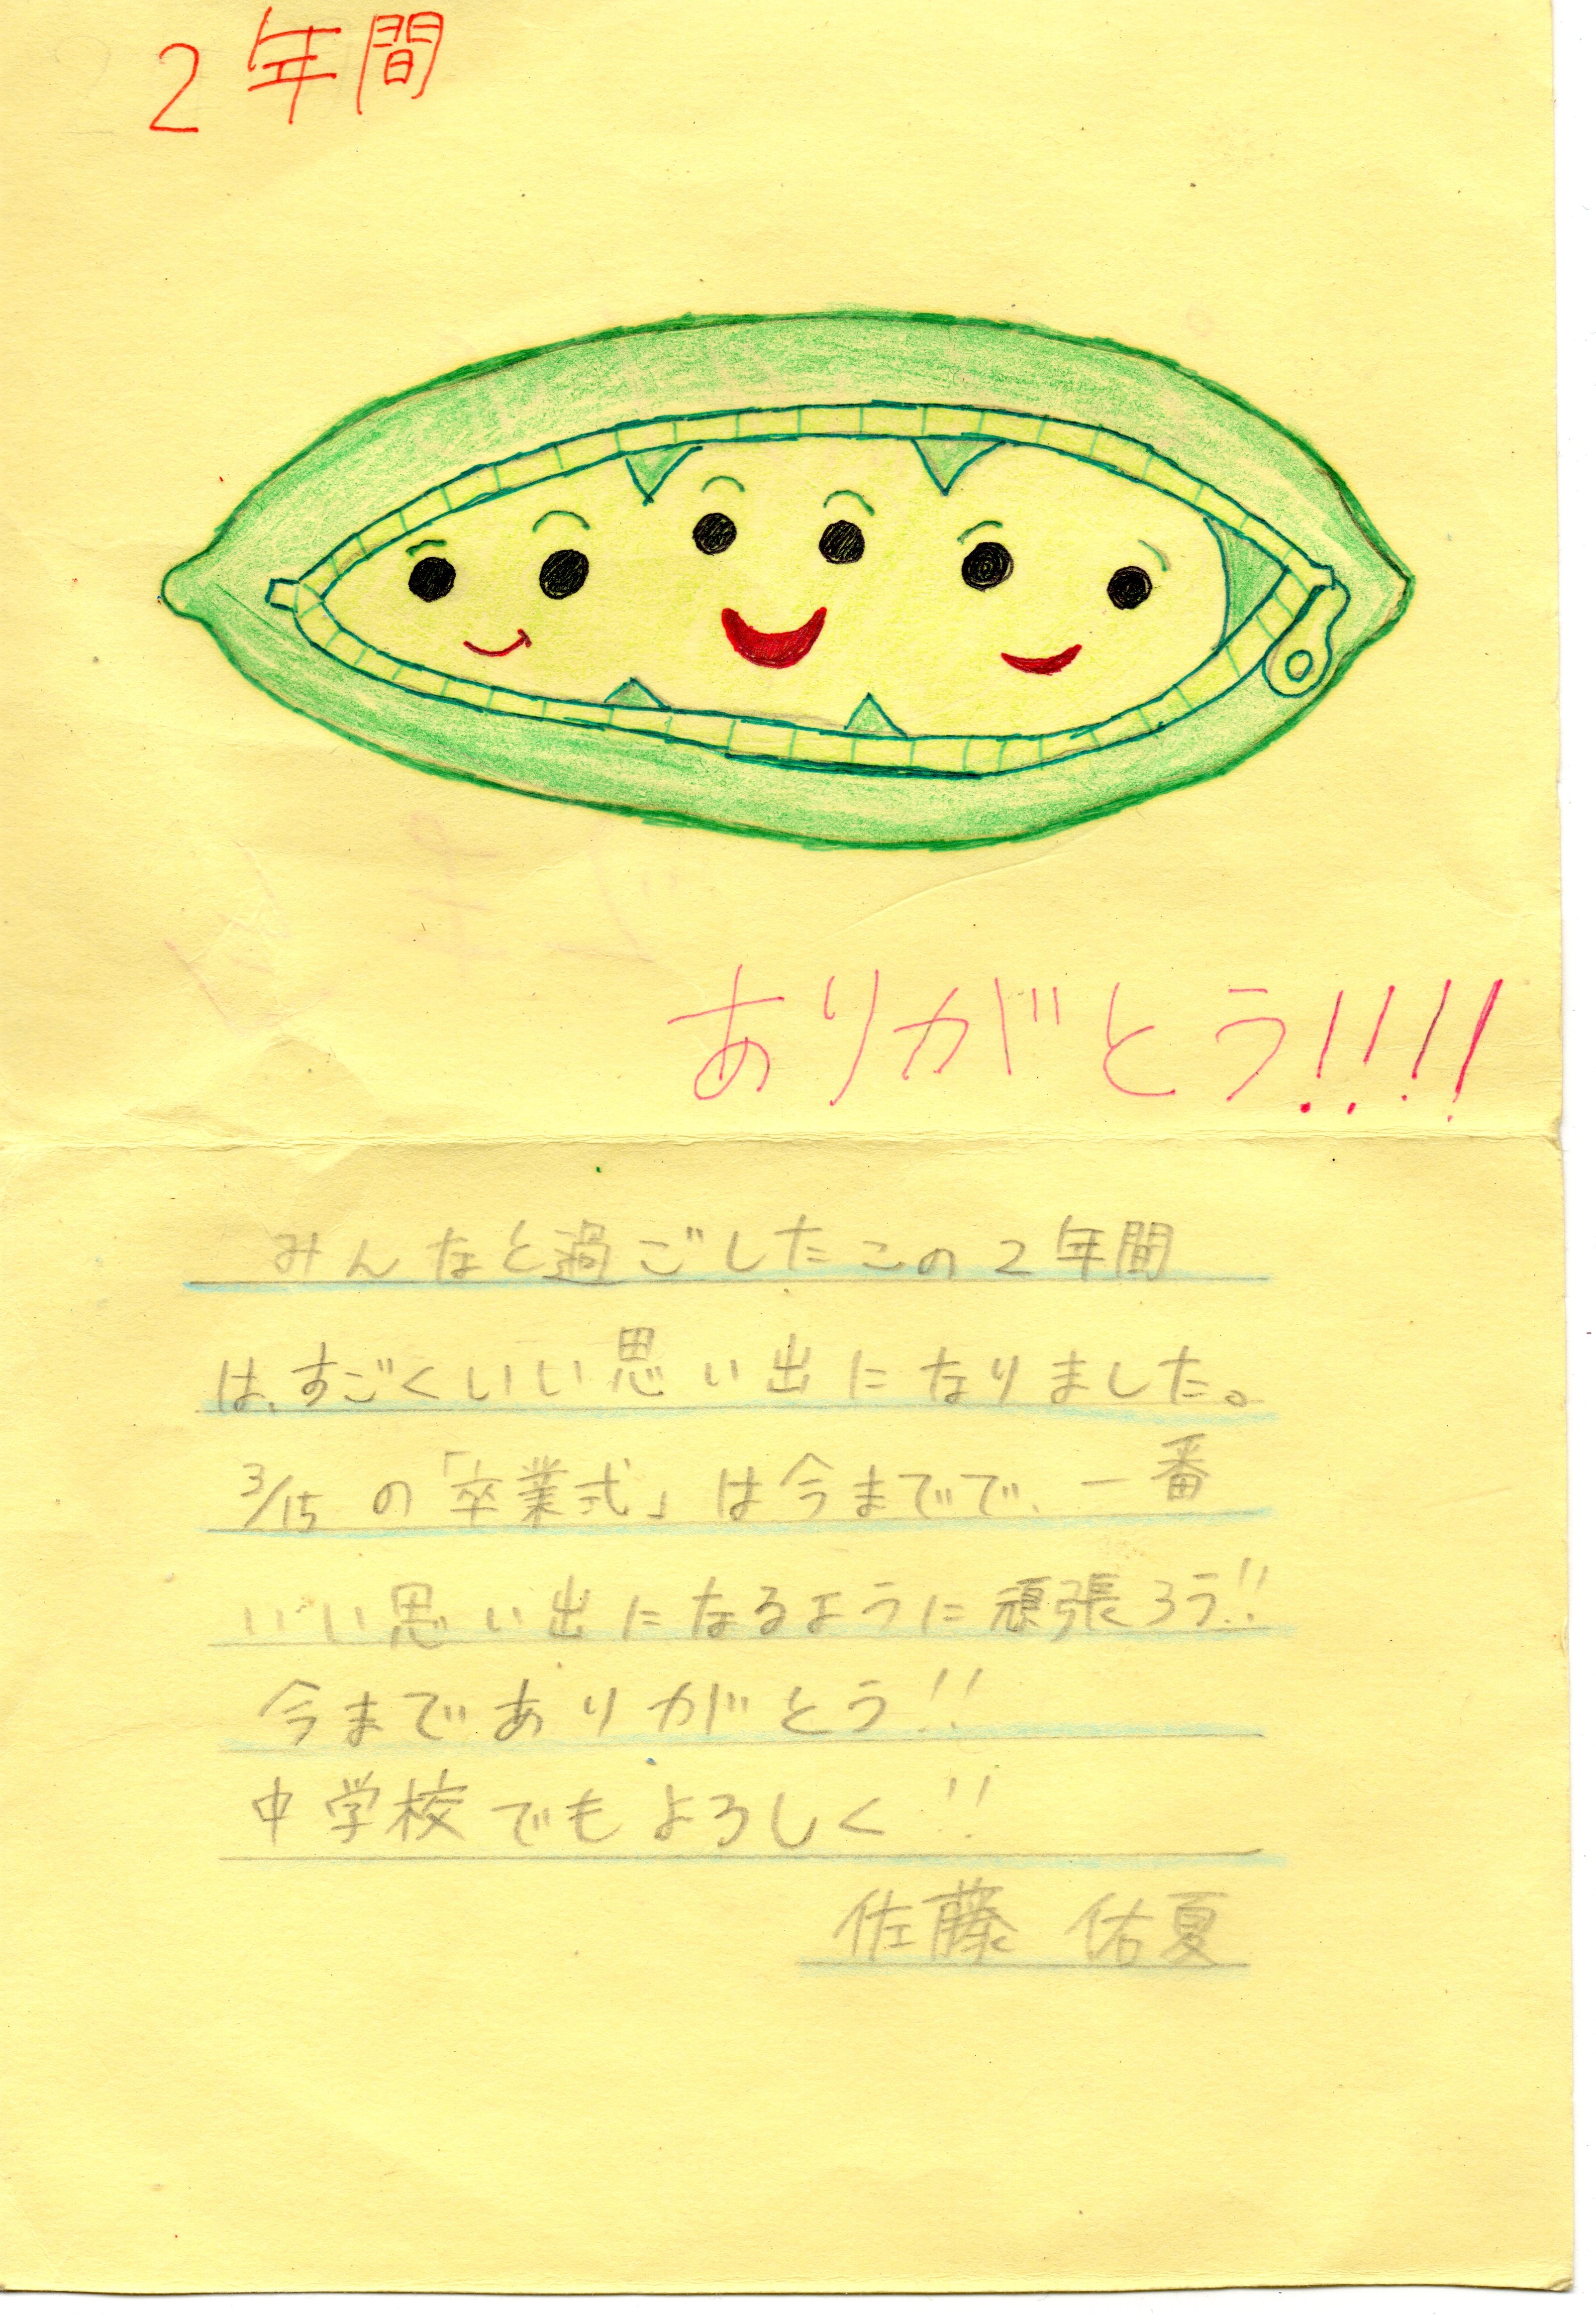 2年間
ありがとう!!!!
みんなと過ごしたこの2年間
は、すごくいい思い出になりました。
3/15の「卒業式」は今までで、一番
いい思い出になるように頑張ろう!!
今までありがとう!!
中学校でもよろしく!!
佐藤 佑夏